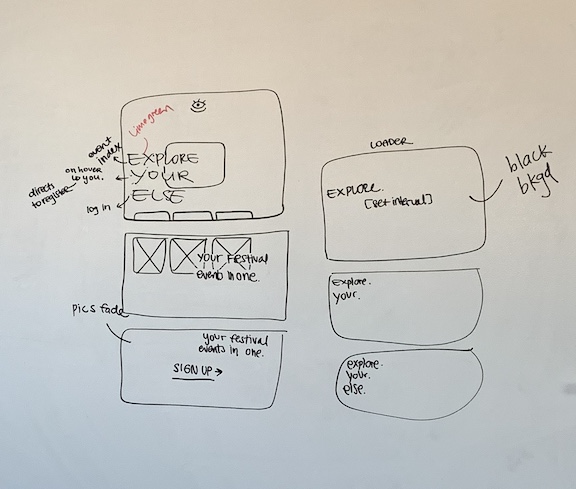 Lime green
event
index
EXPLORE
on hover
to you.
YOUR
directs
to register
log in
ELSE
your festival
events in one.
pics fade
your festival
events in one.
SIGN UP →
LOADER
EXPLORE.
[set interval]
black
bkgd
Explore.
your.
explore.
your.
else.